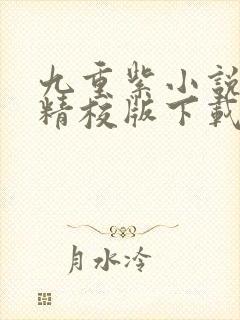 九重紫小説
精校版下載
月水冷